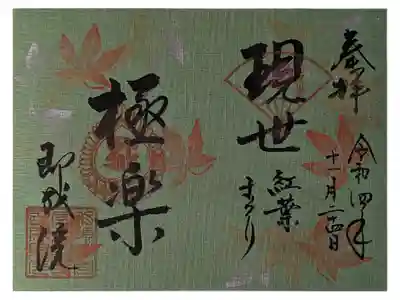 奉拝
令和四年
十一月
現世
紅葉
まつり
極楽
即成院